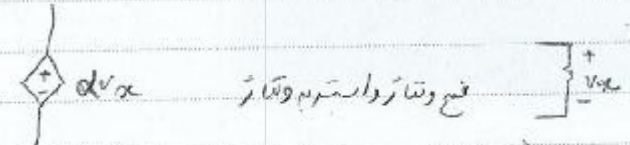 + - αvx منبع ولتاژ وابسته به ولتاژ + vx -